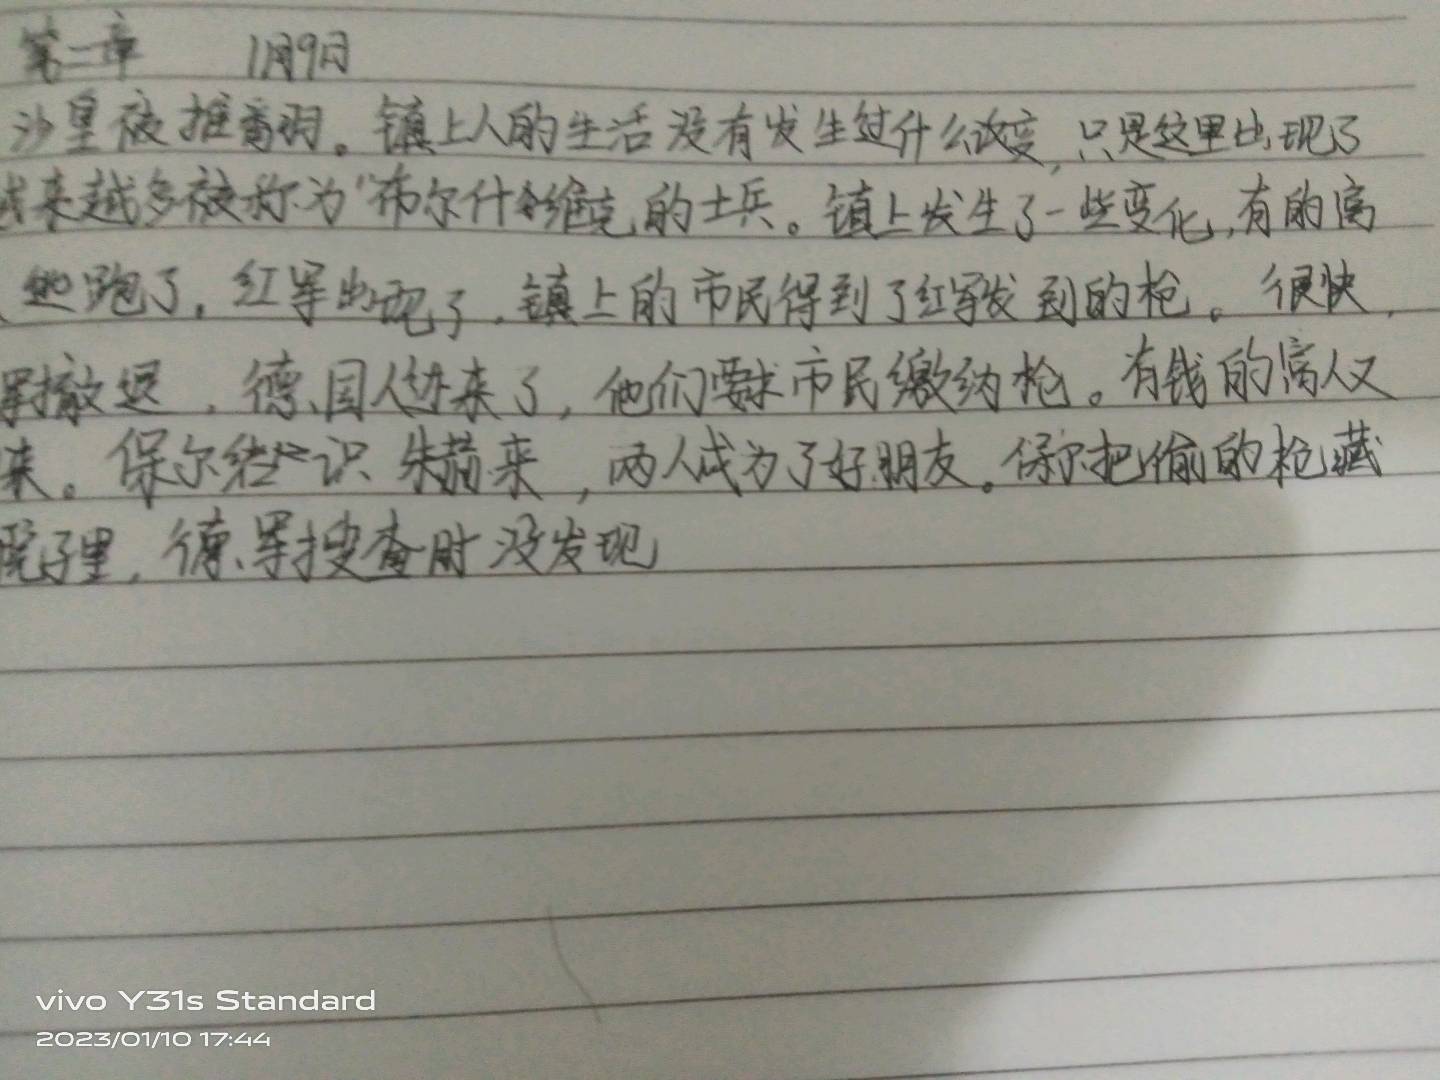 第二章 1月9日
沙皇被推翻。镇上人的生活没有发生过什么改变,只是这里出现了
越来越多被称为"布尔什维克的士兵。镇上发生了一些变化,有的富
跑了。红军出现了,镇上的市民得到了红军发到的枪。很快,
军撤退,德国人进来了,他们要求市民缴纳枪。有钱的富人又
来。保尔结识朱赫来,两人成为了好朋友。保尔把偷的枪藏
院子里,德军搜查时没发现
vivo Y31s Standard
2023/01/10 17:44